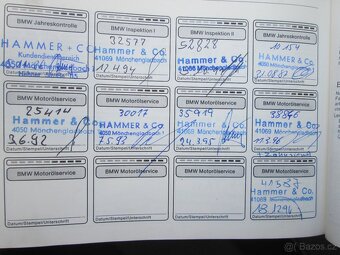 BMW Jahreskontrolle
HAMMER + CO
Kundendienstbereich
Datum/Stempel/Unterschrift
BMW Inspektion I
32577
HAMMER & CO.
41069 Mönchengladbach
12.4.94
Datum/Stempel/Unterschrift
BMW Inspektion II
52828
HAMMER & CO.
41069 Mönchengladbach
Datum/Stempel/Unterschrift
BMW Jahreskontrolle
10154
Hammer & Co.
41069 Mönchengladbach
Datum/Stempel/Unterschrift
BMW Motorölservice
25414
Hammer & Co
4050 Mönchengladbach 1
3.6.92
Datum/Stempel/Unterschrift
BMW Motorölservice
30017
HAMMER & CO.
4050 Mönchengladbach 1
Datum/Stempel/Unterschrift
BMW Motorölservice
35919
Hammer & Co.
41069 Mönchengladbach
24.3.95
Datum/Stempel/Unterschrift
BMW Motorölservice
Hammer & Co.
41069 Mönchengladbach
Datum/Stempel/Unterschrift
BMW Motorölservice
Datum/Stempel/Unterschrift
BMW Motorölservice
Datum/Stempel/Unterschrift
BMW Motorölservice
Datum/Stempel/Unterschrift
BMW Motorölservice
Hammer & Co.
41069 Mönchengladbach
Datum/Stempel/Unterschrift
Bazos.cz